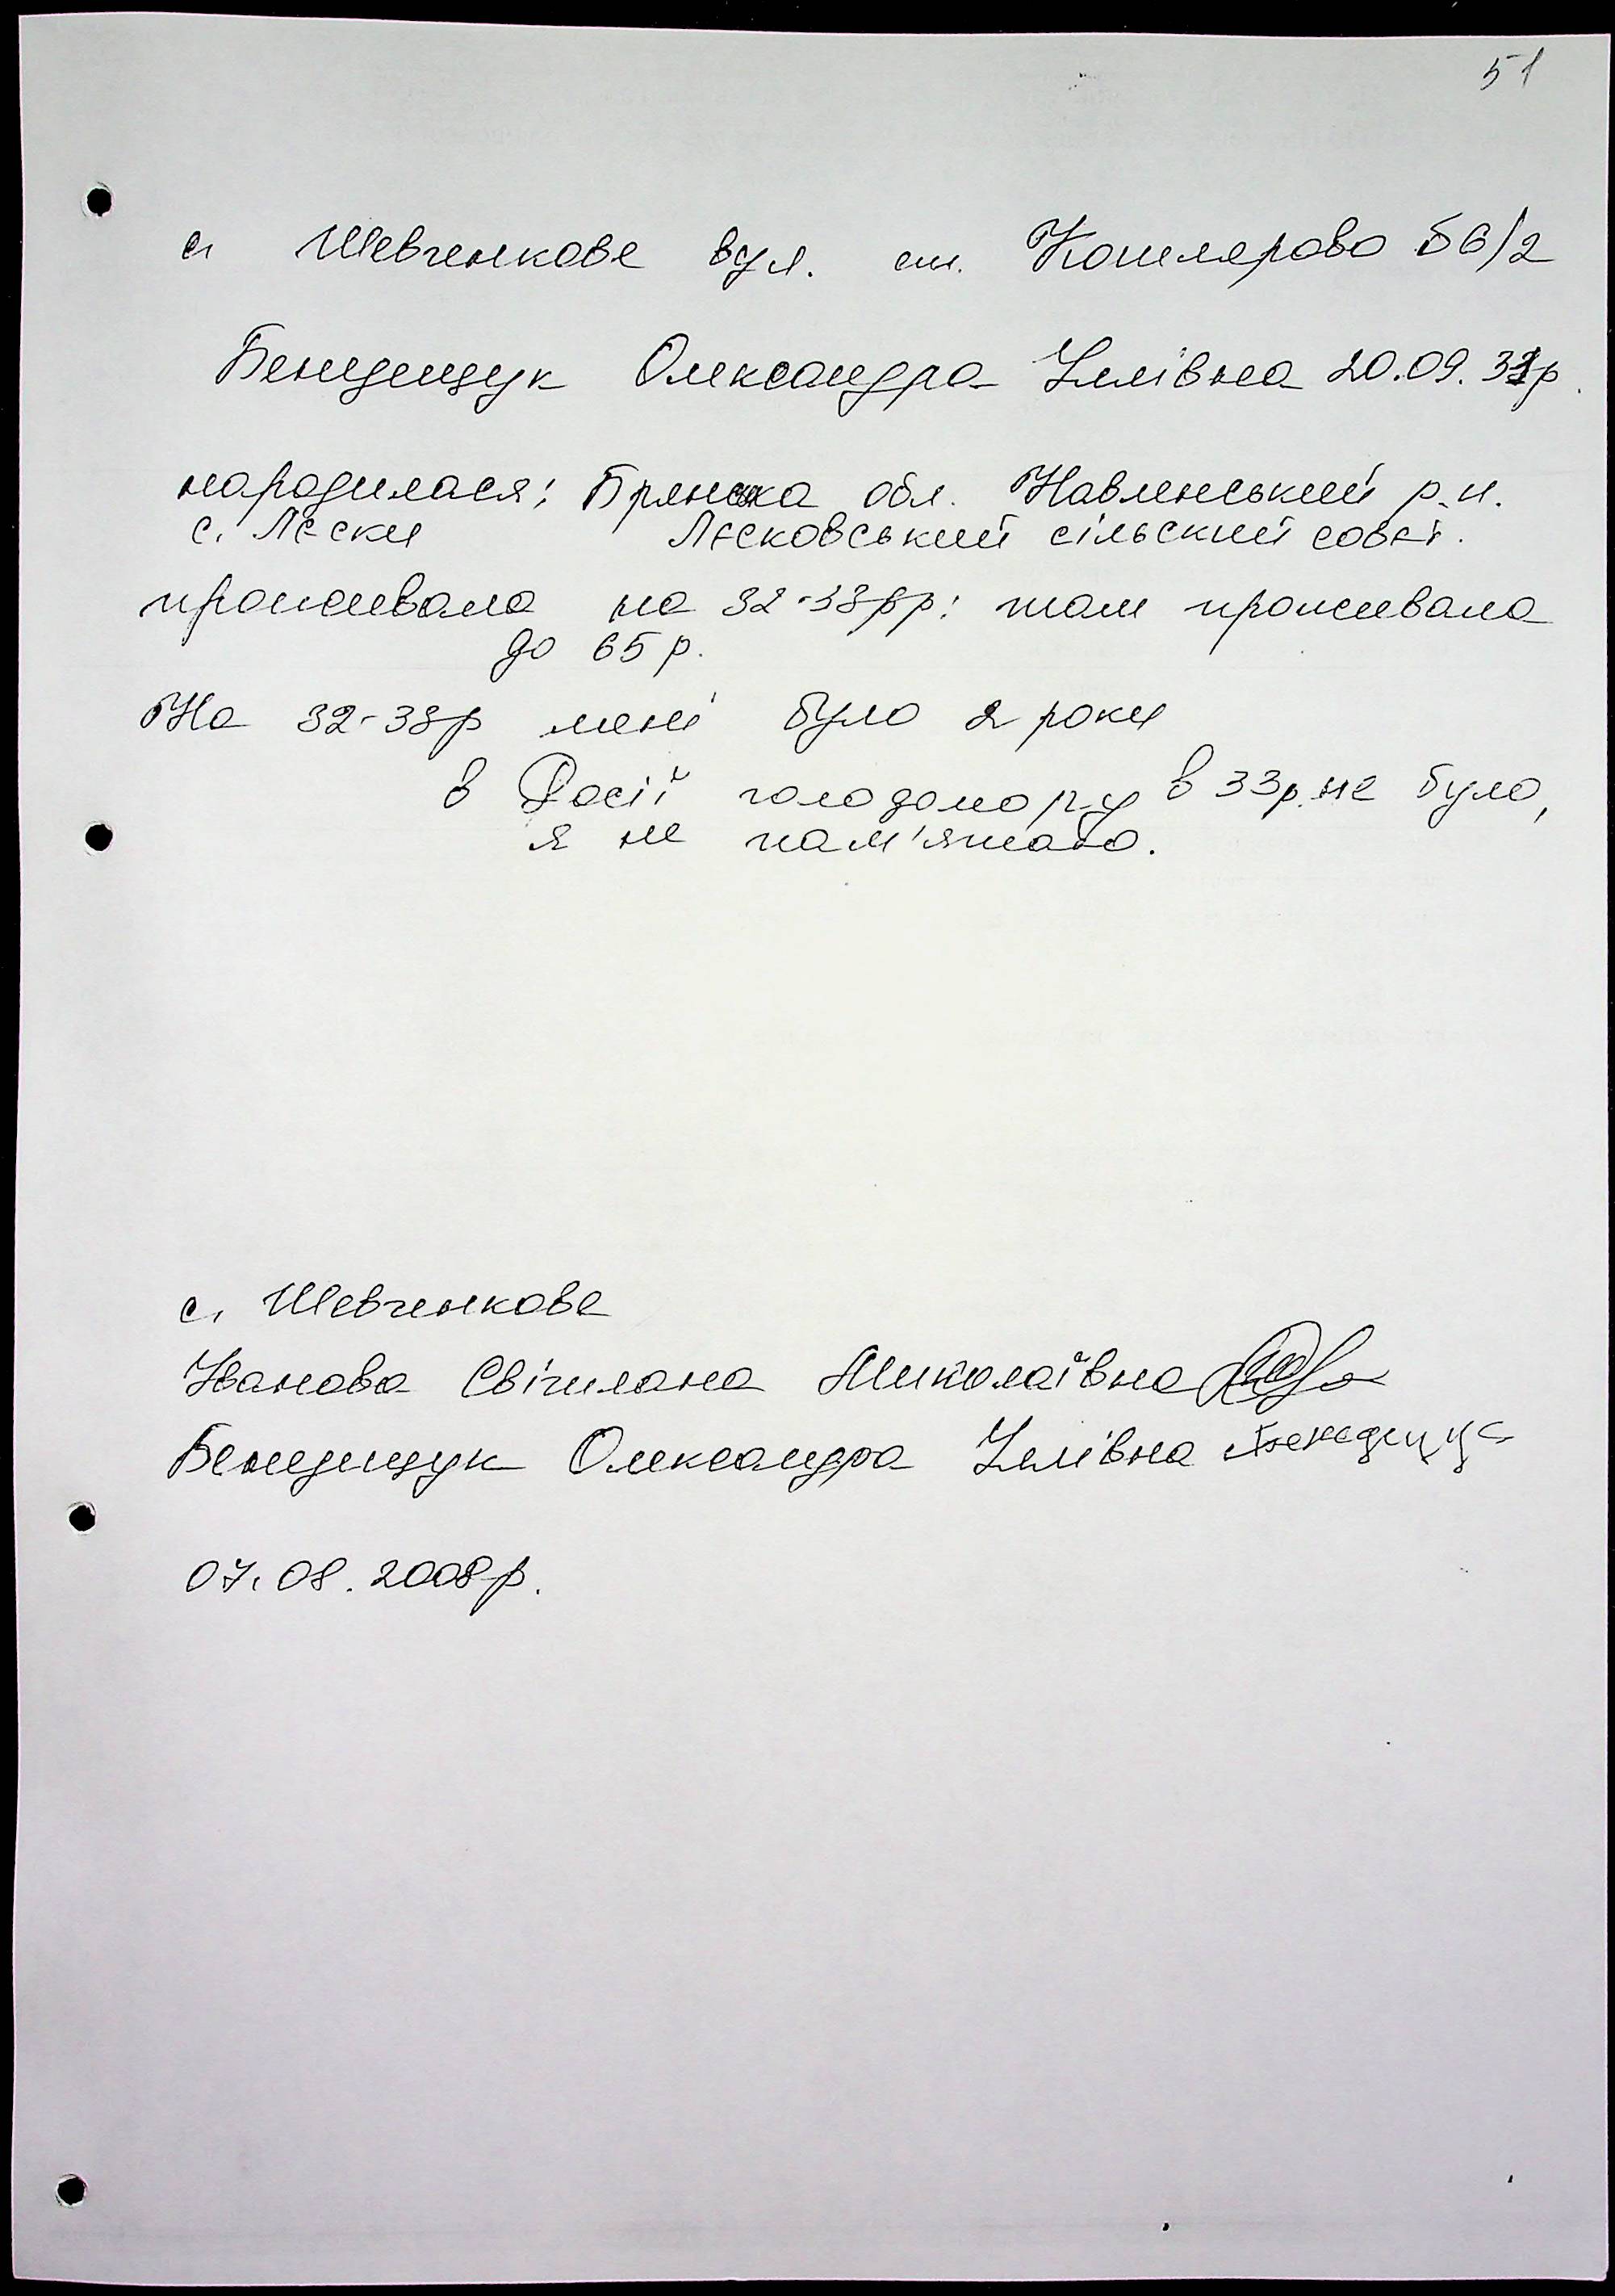 51
с. Шевченкове вул. ст. Котлярово 56/2
Бендищук Олександра Іллівна 20.09.31р.
народилася: Брянська обл. Навлинський р.н.
с. Лєски Лєсковський сільский совєт.
проживала на 32-33рр: там проживала
до 65 р.
На 32-33р мені було 2 роки
в Росії голодомору в 33р. не було,
я не пам'ятаю.
с. Шевченкове
Іванова Світлана Миколаївна
Бендищук Олександра Іллівна
07.08.2008р.